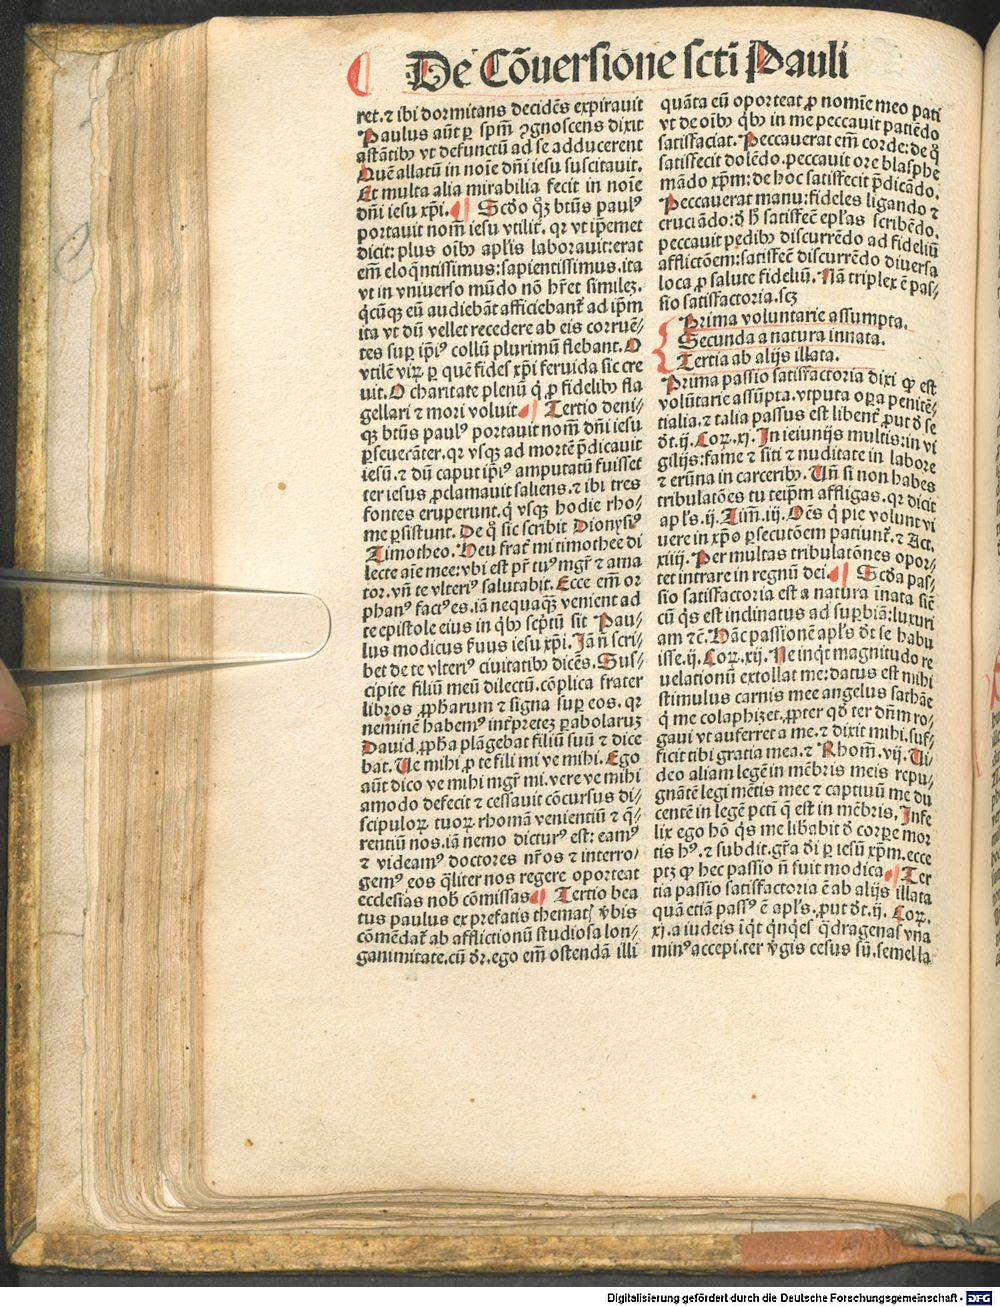 De Cõuersione scti Pauli
ret. ⁊ ibi dormitans decidẽs expirauit
Paulus aũt ꝑ spm̃ ꝯgnoscens dixit
astãtibꝰ vt defunctũ ad se adducerent
Quẽ allatũ in noĩe dñi iesu suscitauit.
Et multa alia mirabilia fecit in noĩe
dñi iesu xp̃i. Scḋo qꝫ btũs paulꝰ
portauit nom̃ iesu vtilit̃. qꝛ vt ip̃emet
dicit: plus oĩbꝰ apl̃is laborauit: erat
em̃ eloq̃ntissimus: sapientissimus. ita
vt in vniuerso mũdo nõ hr̃et similez.
q̃cũqꝫ eũ audiebãt afficiebant̃ ad ip̃m
ita vt dũ vellet recedere ab eis corruẽ⸗
tes sup̱ ip̃iꝰ collũ plurimũ flebant. O
vtilẽ viꝝ ꝑ quẽ fides xp̃i feruida sic cre
uit. O charitate plenũ q̇ ꝓ fidelibꝰ fla
gellari ⁊ mori voluit Tertio deni⸗
qꝫ btũs paulꝰ portauit nom̃ dñi iesu
ꝑseuerãter. qꝛ vsqꝫ ad mortẽ p̃dicauit
iesũ. ⁊ dũ caput ip̃iꝰ amputatũ fuisset
ter iesus ꝓclamauit saliens. ⁊ ibi tres
fontes eruperunt. q̇ vsqꝫ hodie rho⸗
me ꝑsistunt. De q̊ sic scribit Dionysiꝰ
Timotheo. Heu frat̃ mi timothee di
lecte aĩe mee: vbi est pr̃ tuꝰ mgr̃ ⁊ ama
tor. vñ te vlteriꝰ salutabit. Ecce em̃ or
phanꝰ factꝰ es. iã nequaqꝫ̃ venient ad
te epistole eius in q̇bꝰ scp̃tũ sit Pau⸗
lus modicus ẜuus iesu xp̃i. Iã ñ scri⸗
bet de te vlteriꝰ ciuitatibꝰ dicẽs. Sus⸗
cipite filiũ meũ dilectũ. cõplica frater
libros ꝓpharum ⁊ signa sup̱ eos. qꝛ
neminẽ habemꝰ int̃pretez ꝑabolaruz
Dauid. ꝓph̃a plãgebat filiũ suũ ⁊ dice
bat. Ue mihi ꝓ te fili mi ve mihi. Ego
aũt dico ve mihi mgr̃ mi. vere ve mihi
amodo defecit ⁊ cessauit cõcursus di⸗
scipuloꝝ tuoꝝ rhomã venientiũ ⁊ q̃⸗
rentiũ nos. iã nemo dicturꝰ est: eamꝰ
⁊ videamꝰ doctores nr̃os ⁊ interro⸗
gemꝰ eos q̃liter nos regere oporteat
ecclesias nob̃ cõmissas Tertio bea
tus paulus ex prefatis themat̃ v̾bis
cõmẽdat̃ ab afflictionũ studiosa lon⸗
ganimitate. cũ dr̃. ego em̃ ostendã illi
quãta eũ oporteat ꝓ nomĩe meo pati
vt de oĩbꝰ q̇bꝰ in me peccauit patiẽdo
satisfaciat. Peccauerat em̃ corde: de q̊
satisfecit dolẽdo. peccauit ore blasphe
mãdo xp̃m: de hoc satisfecit p̃dicãdo.
Peccauerat manu: fideles ligando ⁊
cruciãdo: ð h̊ satisfeẽ epl̃as scribẽdo.
peccauit pedibꝰ discurrẽdo ad fideliũ
afflictõem: satisfeẽ discurrẽdo diuersa
loca ꝓ salute fideliũ. Nã triplex ẽ pas⸗
sio satisfactoria. scꝫ
Prima voluntarie assumpta.
Secunda a natura innata.
Tertia ab alijs illata.
Prima passio satisfactoria dixi ꝙ est
volũtarie assũpta. vtputa oꝑa penitẽ⸗
tialia. ⁊ talia passus est libent̃ put ð se
ðt. ij. Coꝝ. xj. In ieiunijs multis: in vi
gilijs: fame ⁊ siti ⁊ nuditate in labore
⁊ erũna in carceribꝰ. Uñ si non habes
tribulatões tu teip̃m affligas. qꝛ dicit
apl̃s. ij. Tim̃. iij. Oẽs q̇ pie volunt vi
uere in xp̃o ꝑsecutõem patiunt̃. ⁊ Act.
xiiij. Per multas tribulatõnes opor⸗
tet intrare in regnũ dei. Scḋa pas⸗
sio satisfactoria est a natura ĩnata sic̃
cũ q̇s est inclinatus ad supbiã: luxuri
am ⁊c̃. Hãc passionẽ apl̃s ðt se habu
isse. ij. Coꝝ. xij. Ne inq̇t magnitudo re
uelationũ extollat me: datus est mihi
stimulus carnis mee angelus sathãe
q̇ me colaphizet. ꝓpter qð ter dñm ro⸗
gaui vt auferret a me. ⁊ dixit mihi. suf⸗
ficit tibi gratia mea. ⁊ Rhom̃. vij. Ui⸗
deo aliam legẽ in mẽbris meis repu⸗
gnãtẽ legi mẽtis mee ⁊ captiuũ me du
centẽ in legẽ pcti̇ q̇ est in mẽbris. Infe
lix ego hõ q̇s me lib̾abit ð corꝑe mor
tis hꝰ. ⁊ subdit. gr̃a ði ꝑ iesũ xp̃m. ecce
ptꝫ ꝙ hec passio ñ fuit modica Ter
tia passio satisfactoria ẽ ab alijs illata
quã etiã passꝰ ẽ apl̃s. put ðt. ij. Coꝝ.
xj. a iudeis iq̇t q̇nq̇es q̃dragenas vna
minꝰ accepi. ter v̾gis cesus sũ. semel la
Digitalisierung gefördert durch die Deutsche Forschungsgemeinschaft - DFG